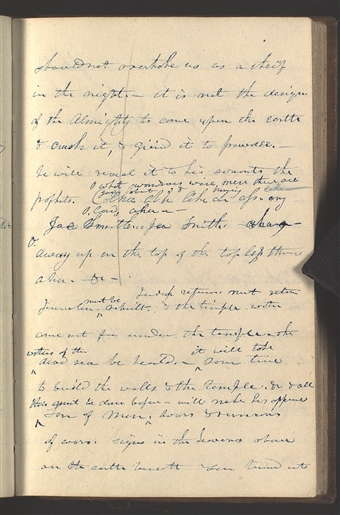 should not overtake us as a theif
in the night — it is not the design
of the Almighty to come upon the earth
& crush it, & grind it to powder. —
he will reveal it to his servants the
prophets. O what wondrous wise men there are
going about & braying like
(
O, God, where a —
Joe Smith. Joe Smith
away up on the top of the top less throne
aha. — &c —
Judah returns must return
Jerusalem must be rebuilt. & the temple water
come out from under the temple — the
waters of the
dead sea be heald. — it will take
some time
to build the walls & the Temple. &c & all
this must be done before — will make his appearance
Son of Man; wars & rumours
of wars. signs in the heavens above
on the earth beneath Sun turned into